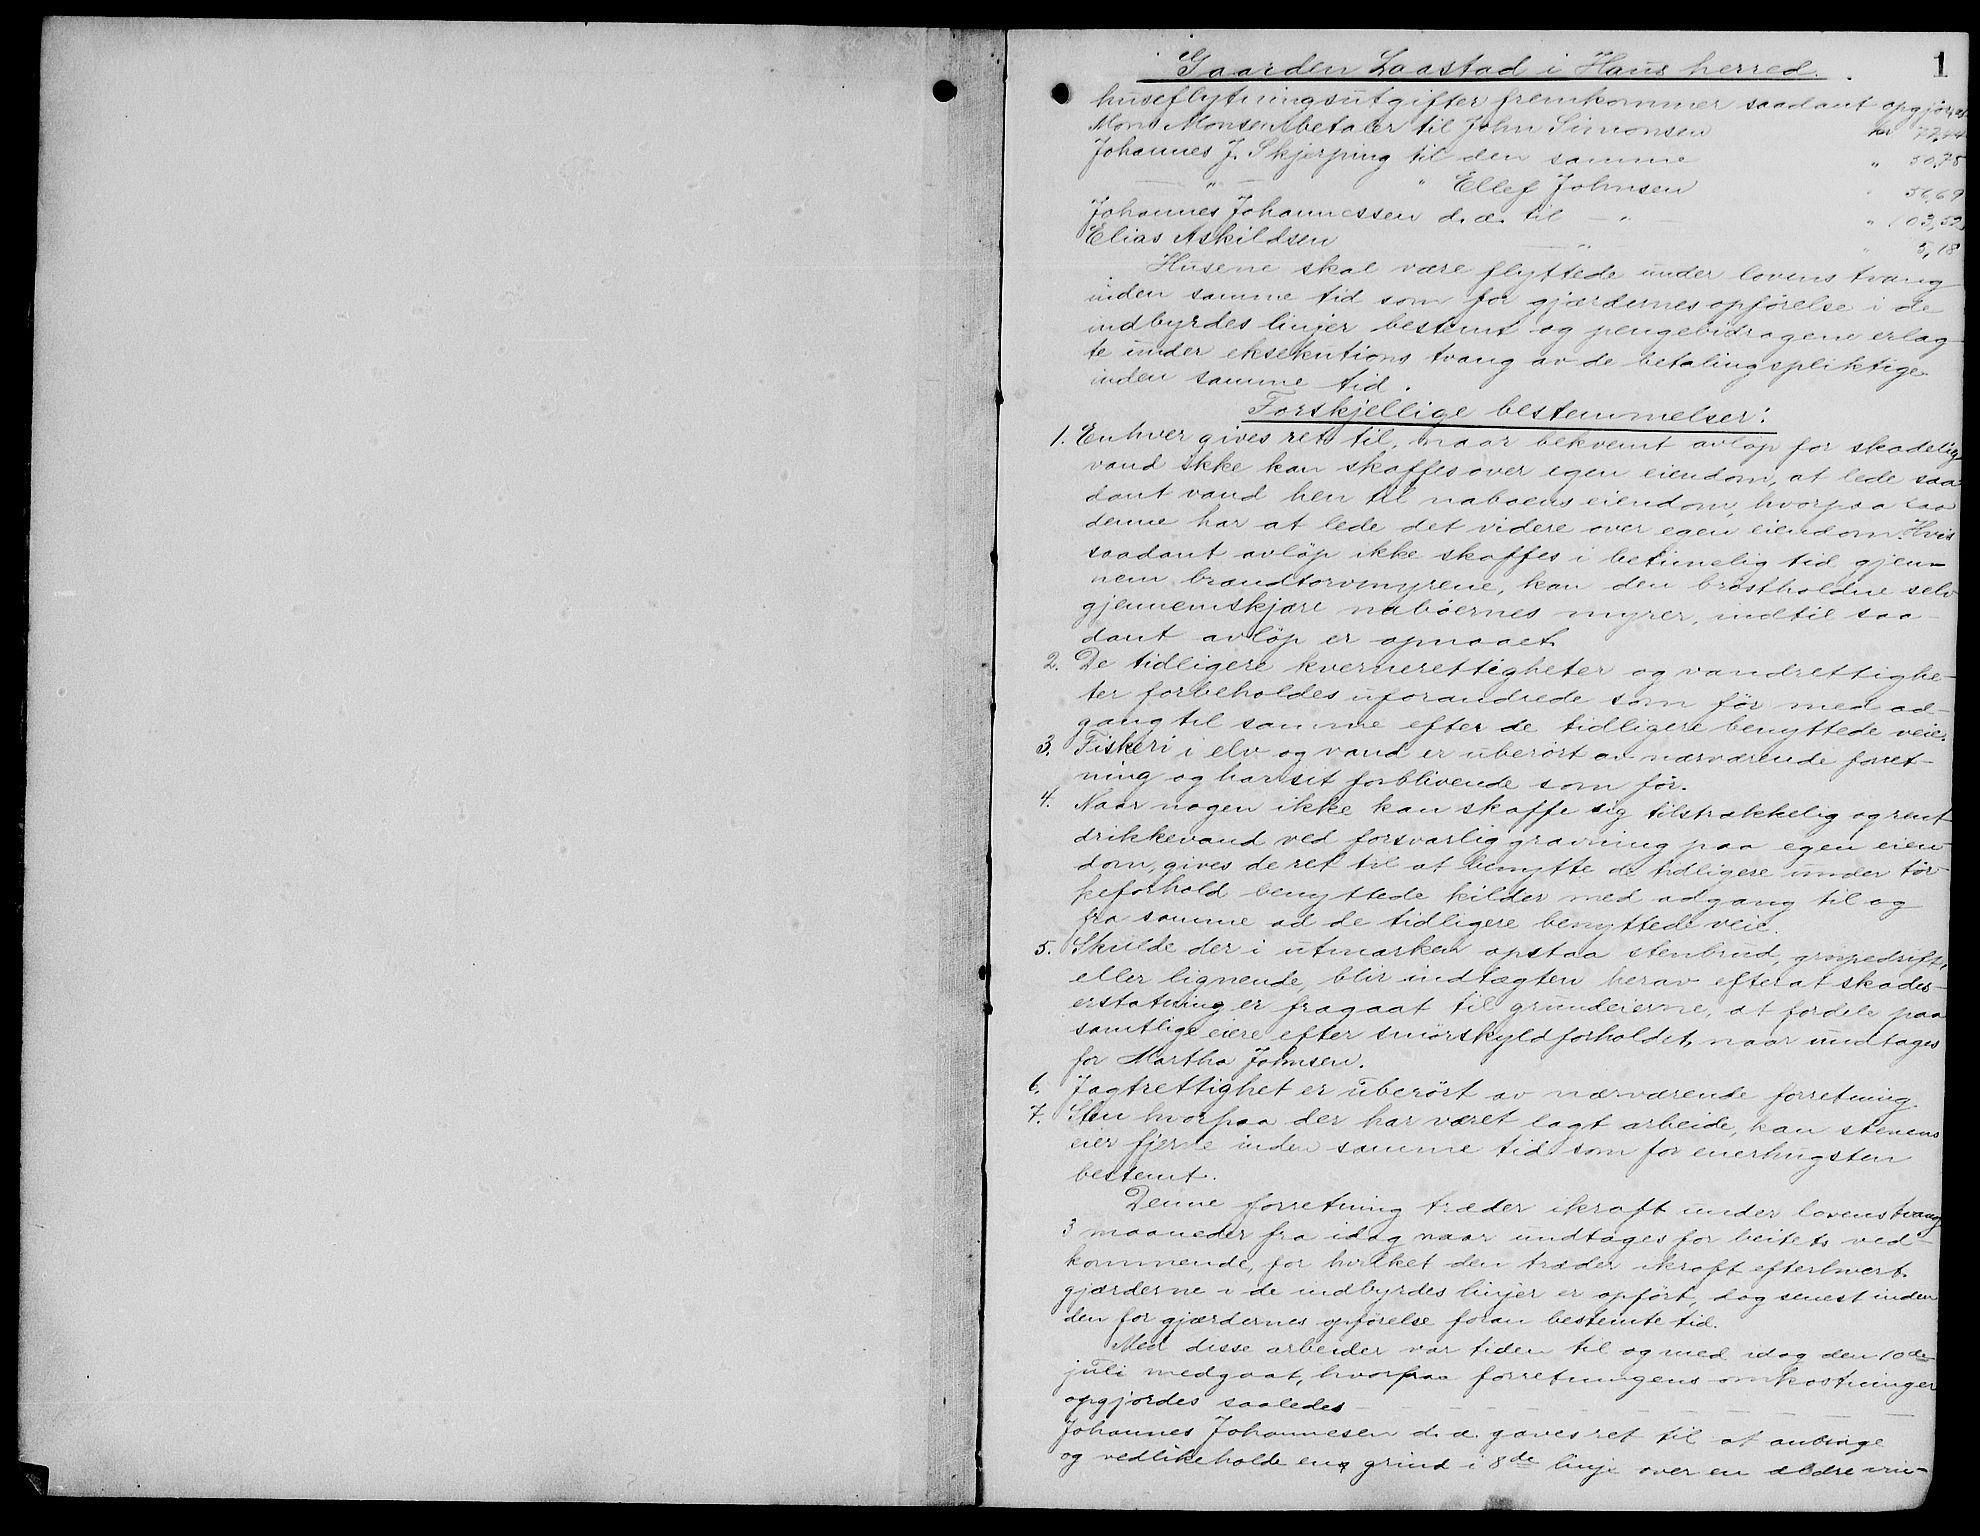 Gaarden Laastad i Haus herred. 1
huseflytningsutgifter fremkommer saadant opgjør, at
Mons Monsen betaler til John Simonsen kr 77,
Johannes J. Skjerping til den samme " 50,75
— " — " Ellef Johnsen 56,69
Johannes Johannessen d. æ. til — " — " 103,52
Elias Askildsen — " — " 5,18
Husene skal være flyttede under lovens tvang
inden samme tid som for gjærdernes opførelse i de
indbyrdes linjer bestemt og pengebidragene erlag-
te under eksekutions tvang av de betalingspliktige
inden samme tid.
Forskjellige bestemmelser:
1. Enhver gives ret til, naar bekvemt avløp for skadelig
vand ikke kan skaffes over egen eiendom, at lede saa-
dant vand hen til naboens eiendom, hvorpaa saa
denne har at lede det videre over egen eiendom. Hvis
saadant avløp ikke skaffes i betimelig tid gjen-
nem brandtorvmyrene, kan den brøstholdne selv
gjennemskjære naboernes myrer, indtil saa-
dant avløp er opnaaet.
2. De tidligere kvernerettigheter og vandrettighe-
ter forbeholdes uforandrede som før med ad-
gang til samme efter de tidligere benyttede veie.
3. Fiskeri i elv og vand er uberørt av nærværende forret-
ning og har sit forblivende som før.
4. Naar nogen ikke kan skaffe sig tilstrækkelig og rent
drikkevand ved forsvarlig gravning paa egen eien-
dom, gives de ret til at benytte de tidligere under tør-
keforhold benyttede kilder med adgang til og
fra samme ad de tidligere benyttede veie.
5. Skulde der i utmarken opstaa stenbrud, grøpedrift,
eller lignende, blir indtægten herav efterat skades-
erstatning er fragaat til grundeierne, at fordele paa
samtlige eiere efter smørskyldforholdet, naar undtages
for Martha Johnsen.
6. Jagtrettighet er uberørt av nærværende forretning.
7. Sten hvorpaa der har været lagt arbeide, kan stenens
eier fjerne inden samme tid som for enerhugsten
bestemt.
Denne forretning træder ikraft under lovens tvang
3 maaneder fra idag naar undtages for beitets ved-
kommende, for hvilket den træder ikraft efterhvert
gjærderne i de indbyrdes linjer er opført, dog senest inden
den for gjærdernes opførelse foran bestemte tid.
Med disse arbeider var tiden til og med idag den 10de
juli medgaat, hvorpaa forretningens omkostninger
opgjordes saaledes — — — — — — — — —
Johannes Johannesen d. æ. gaves ret til at anbringe
og vedlikeholde en grind i 8de linje over en ældre vin-